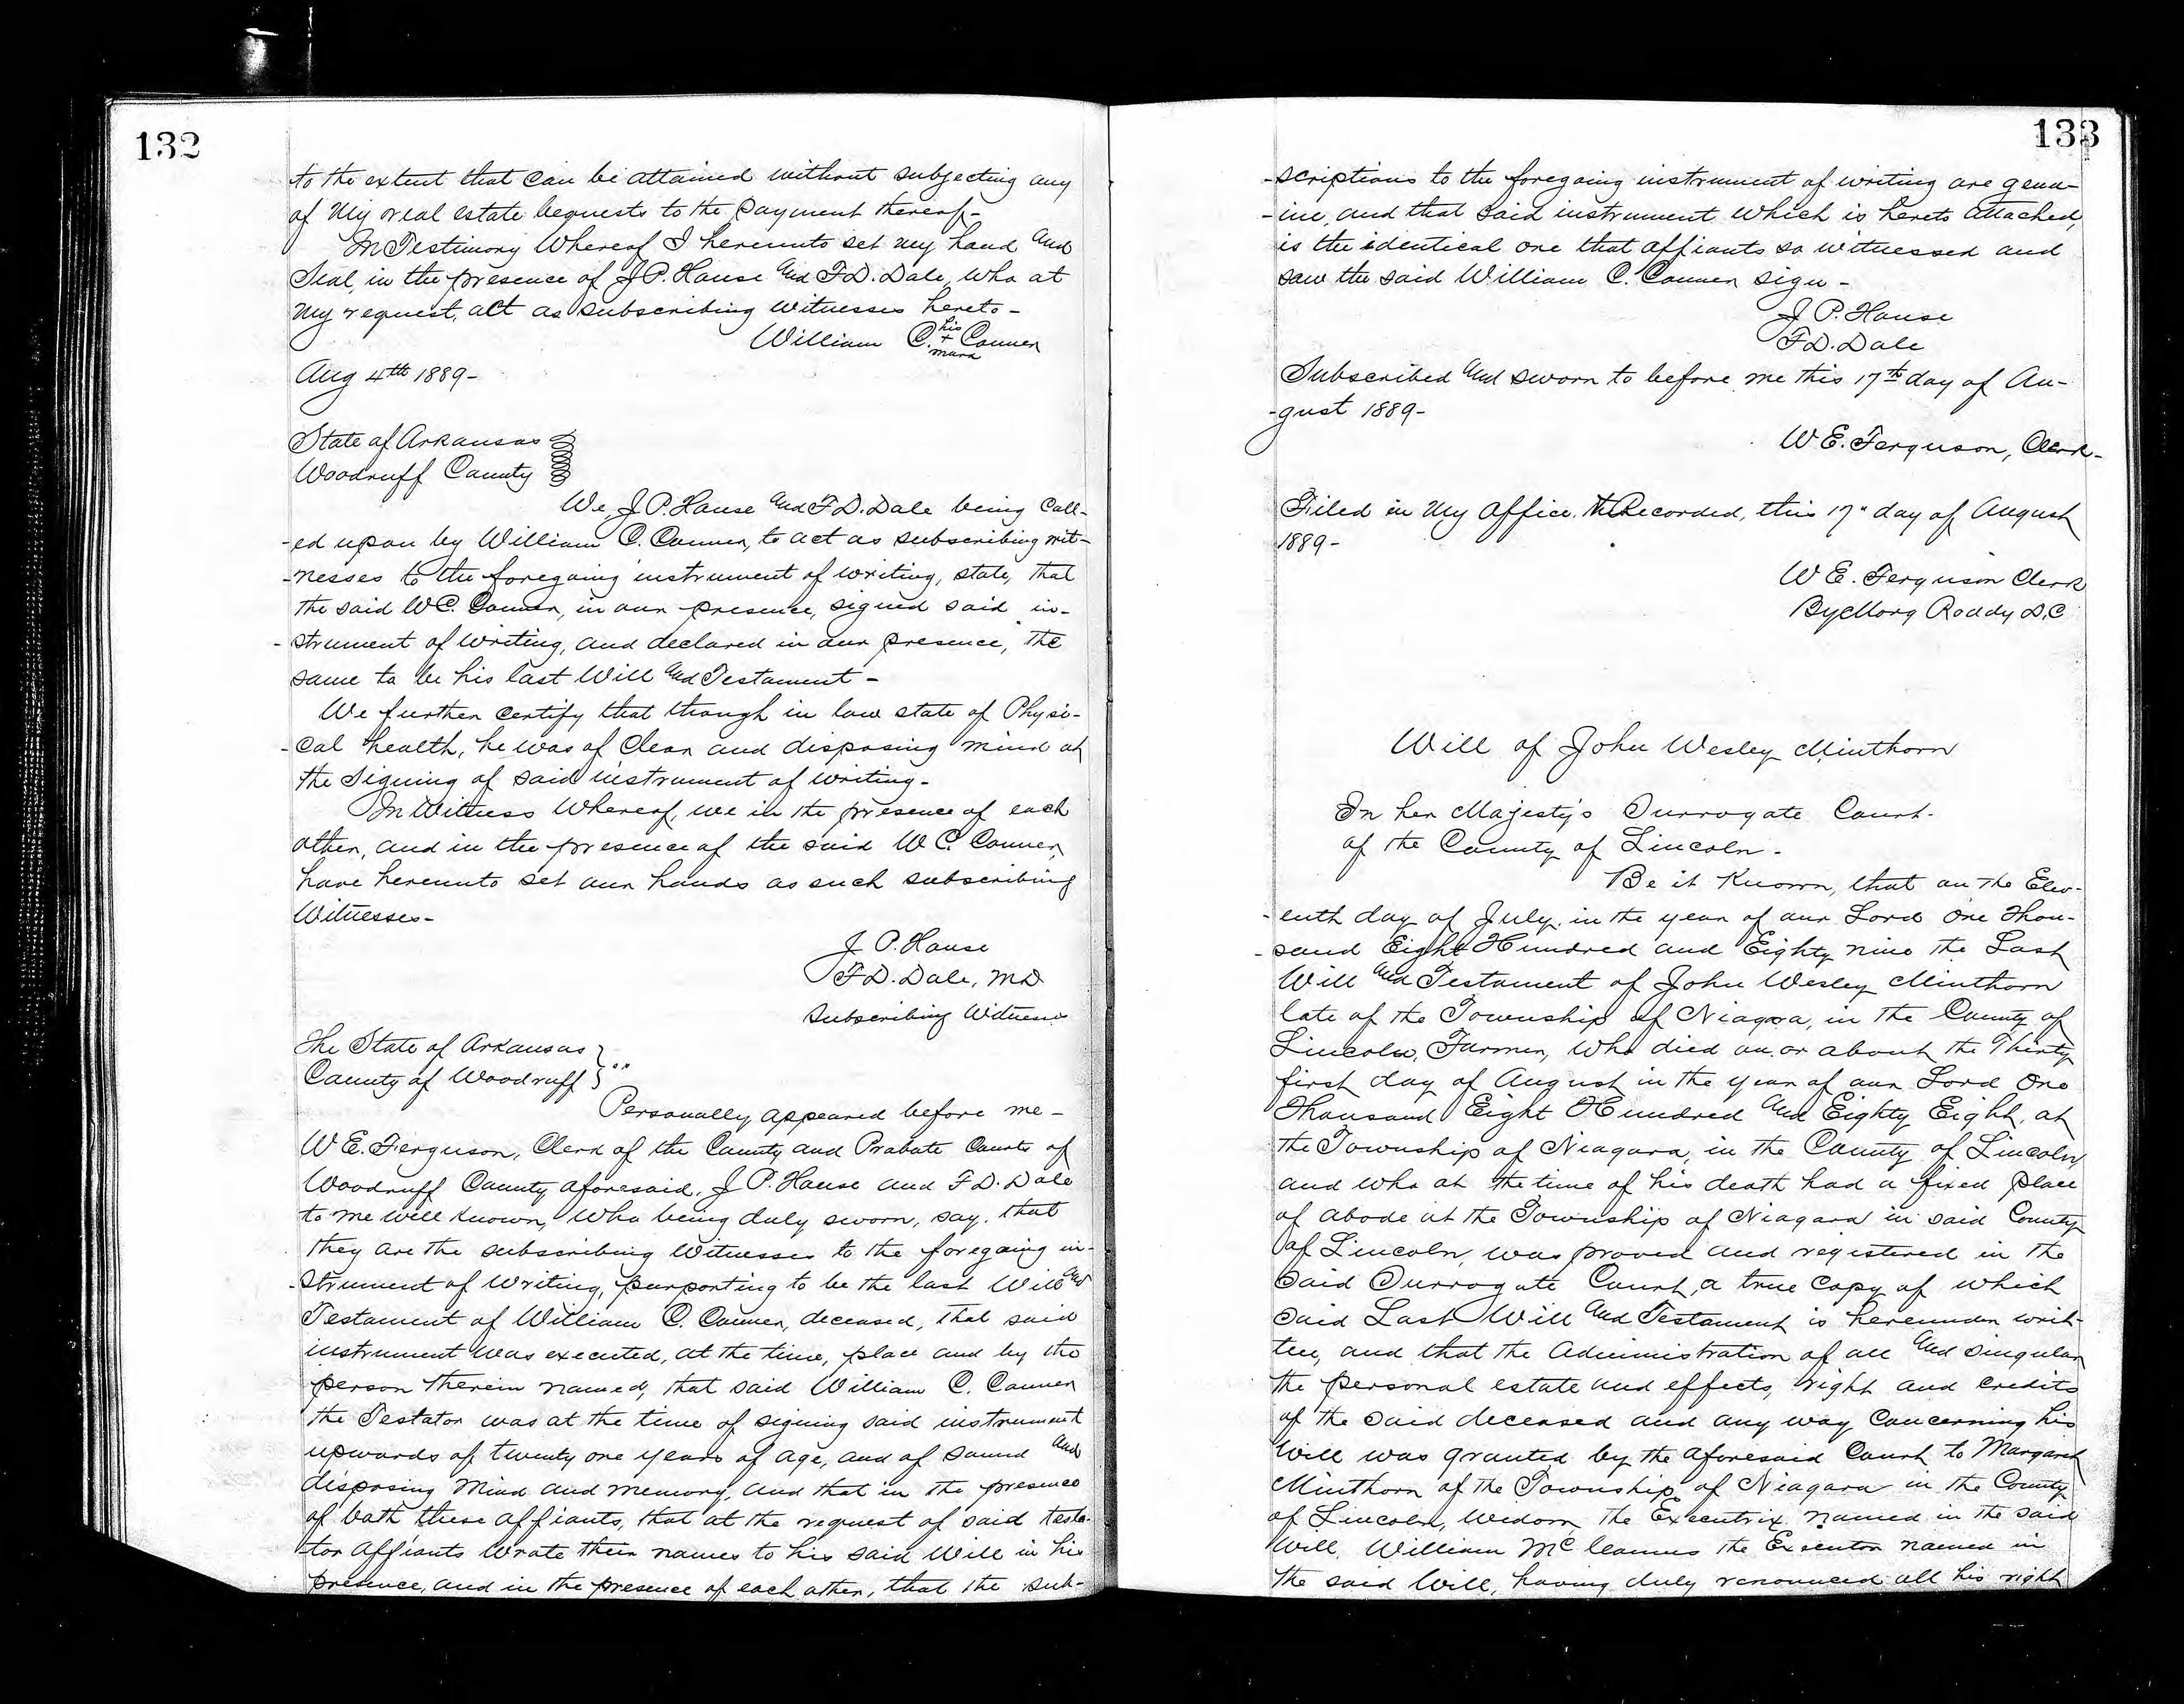 132
to the extent that can be attained without subjecting any
of my real estate bequests to the payment thereof-
In Testimony Whereof I hereunto set my hand and
Seal, in the presence of J.P. House and F.D. Dale, who at
my request, act as subscribing witnesses hereto-
William C. his + mark Conner
Aug 4th 1889-
State of Arkansas
Woodruff County
We, J.P. House and F.D. Dale being call-
-ed upon by William C. Conner, to act as subscribing wit-
-nesses to the foregoing instrument of writing, state, that
the said W.C. Conner, in our presence, signed said in-
-strument of writing, and declared in our presence, the
same to be his last Will and Testament-
We further certify that though in low state of Physi-
-cal health, he was of clear and disposing mind at
the signing of said instrument of writing-
In Witness Whereof, we in the presence of each
other, and in the presence of the said W.C. Conner,
have hereunto set our hands as such subscribing
Witnesses-
J.P. House
F.D. Dale, MD
Subscribing Witness
The State of Arkansas
County of Woodruff
Personally appeared before me-
W.E. Ferguson, Clerk of the County and Probate Courts of
Woodruff County aforesaid, J.P. House and F.D. Dale
to me well known, who being duly sworn, say, that
they are the subscribing witnesses to the foregoing in-
-strument of writing, purporting to be the last Will and
Testament of William C. Conner, deceased, that said
instrument was executed, at the time, place and by the
person therein named, that said William C. Conner
the Testator was at the time of signing said instrument
upwards of twenty one years of age, and of sound and
disposing mind and memory, and that in the presence
of both these affiants, that at the request of said testa-
-tor affiants wrote their names to his said Will in his
presence, and in the presence of each other, that the sub-
133
-scriptions to the foregoing instrument of writing are genu-
-ine, and that said instrument which is hereto attached,
is the identical one that affiants so witnessed and
saw the said William C. Conner sign-
J.P. House
F.D. Dale
Subscribed and sworn to before me this 17th day of Au-
-gust 1889-
W.E. Ferguson, Clerk-
Filed in my office & Recorded, this 17" day of August
1889-
W.E. Ferguson Clerk
By Morg Roddy D.C.
Will of John Wesley Minthorn
In her Majesty's Surrogate Court.
of the County of Lincoln-
Be it Known, that on the Elev-
-enth day of July, in the year of our Lord One Thou-
-sand Eight Hundred and Eighty nine the Last
Will and Testament of John Wesley Minthorn
late of the Township of Niagara, in the County of
Lincoln, Farmer, who died on or about the Thirty
first day of August in the year of our Lord One
Thousand Eight Hundred and Eighty Eight, at
the Township of Niagara, in the County of Lincoln
and who at the time of his death had a fixed place
of abode at the Township of Niagara in said County
of Lincoln, was proved and registered in the
said Surrogate Court, a true copy of which
said Last Will and Testament is hereunder writ-
ten, and that the Administration of all and singular
the personal estate and effects, right and credits
of the said deceased and any way concerning his
will was granted by the aforesaid Court to Margaret
Minthorn of the Township of Niagara in the County
of Lincoln, Widow, the Executrix named in the said
Will. William the Executor named in
the said Will, having duly renounced all his right